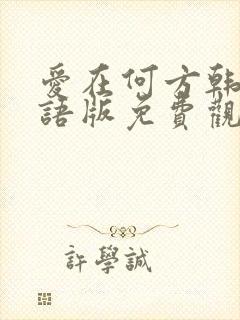 愛在何方韩
語版免費觀
許學誠